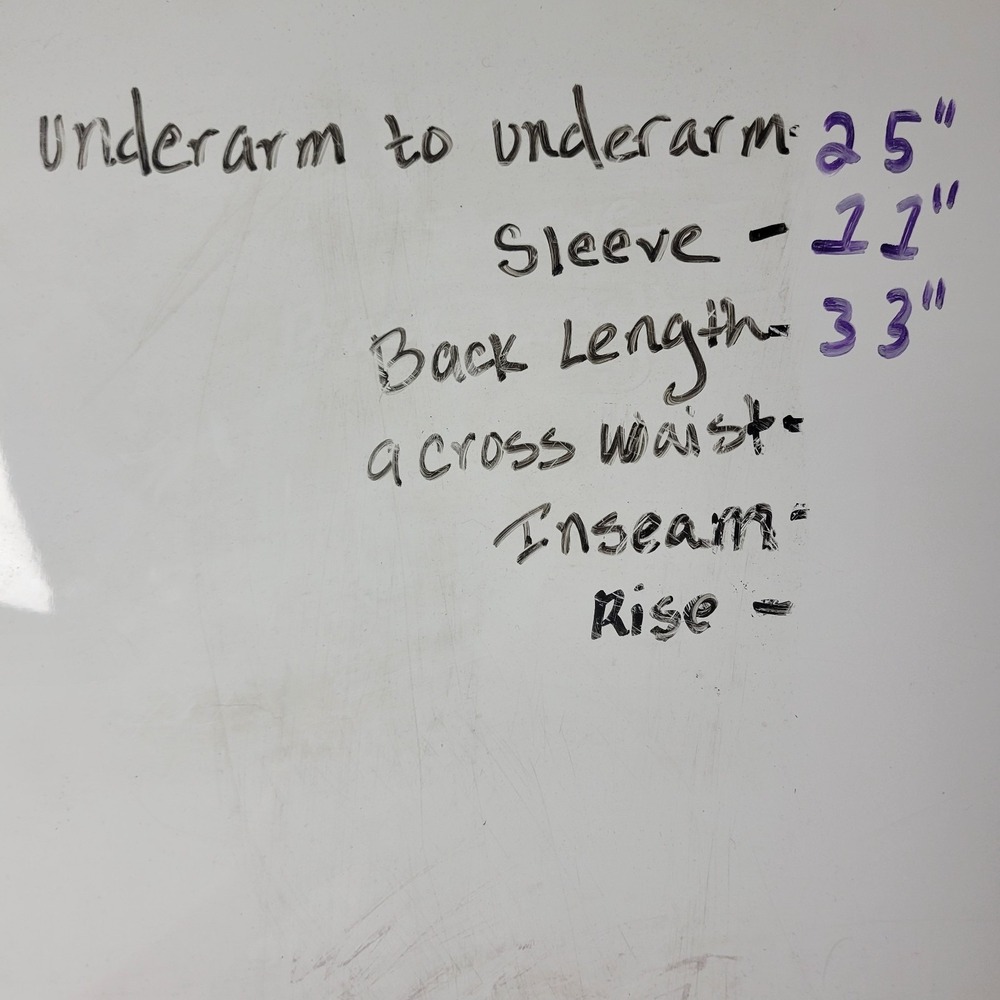 underarm to underarm - 25"
Sleeve - 11"
Back Length - 33"
across waist -
Inseam -
Rise -